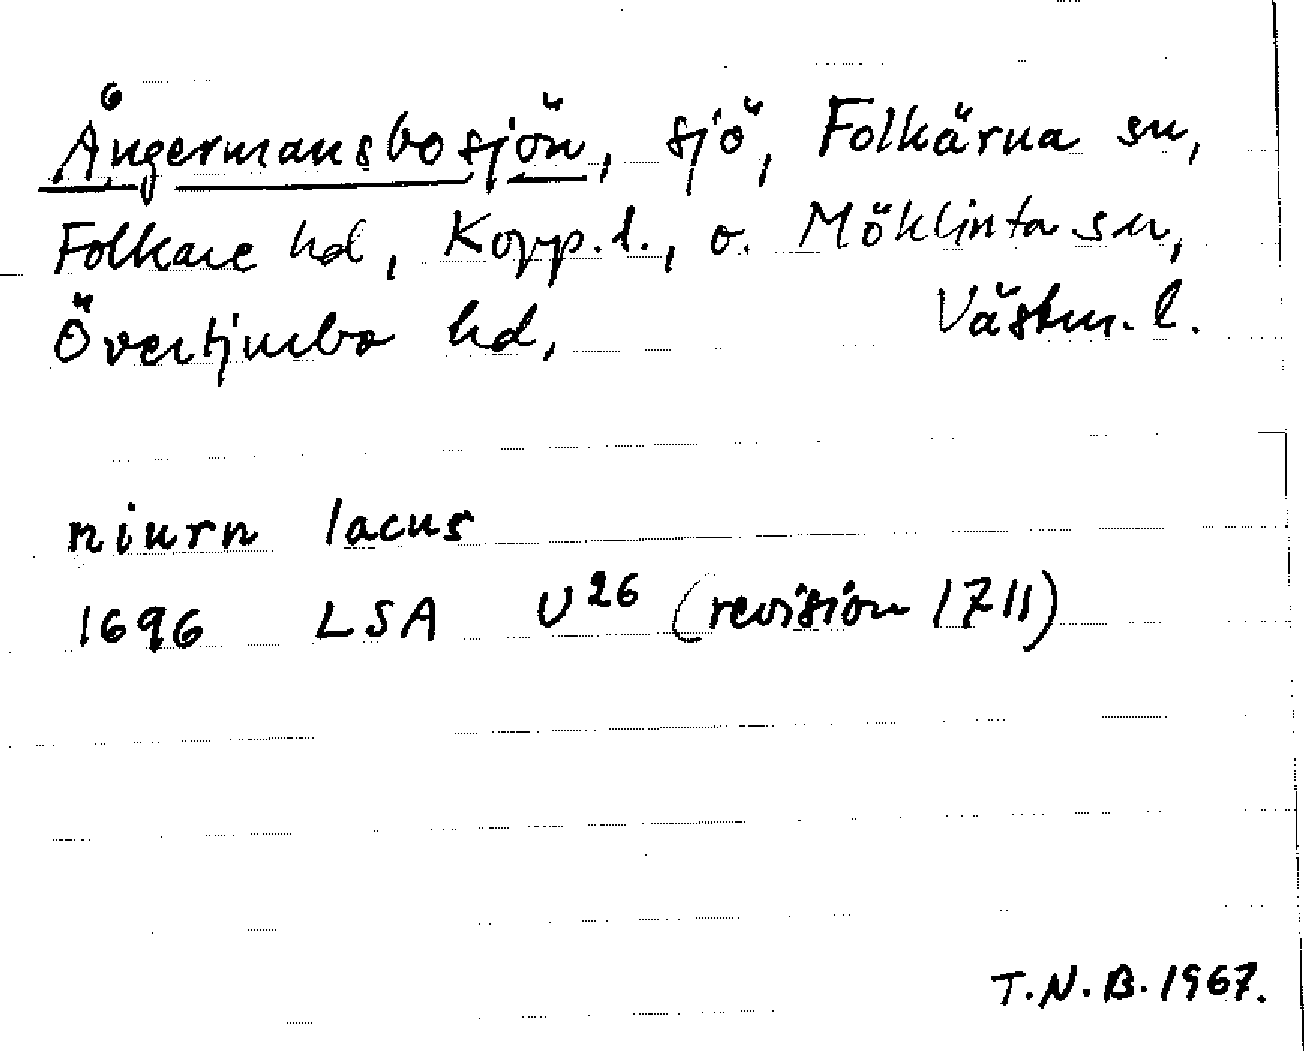 Ångermansbosjön, sjö, Folkärna sn,
Folkare hd, Kopp. l., o. Möklinta sn,
Övertjurbo hd, Västm. l.
niurn lacus
1696 LSA U26 (revision 1711)
T.N.B. 1967.